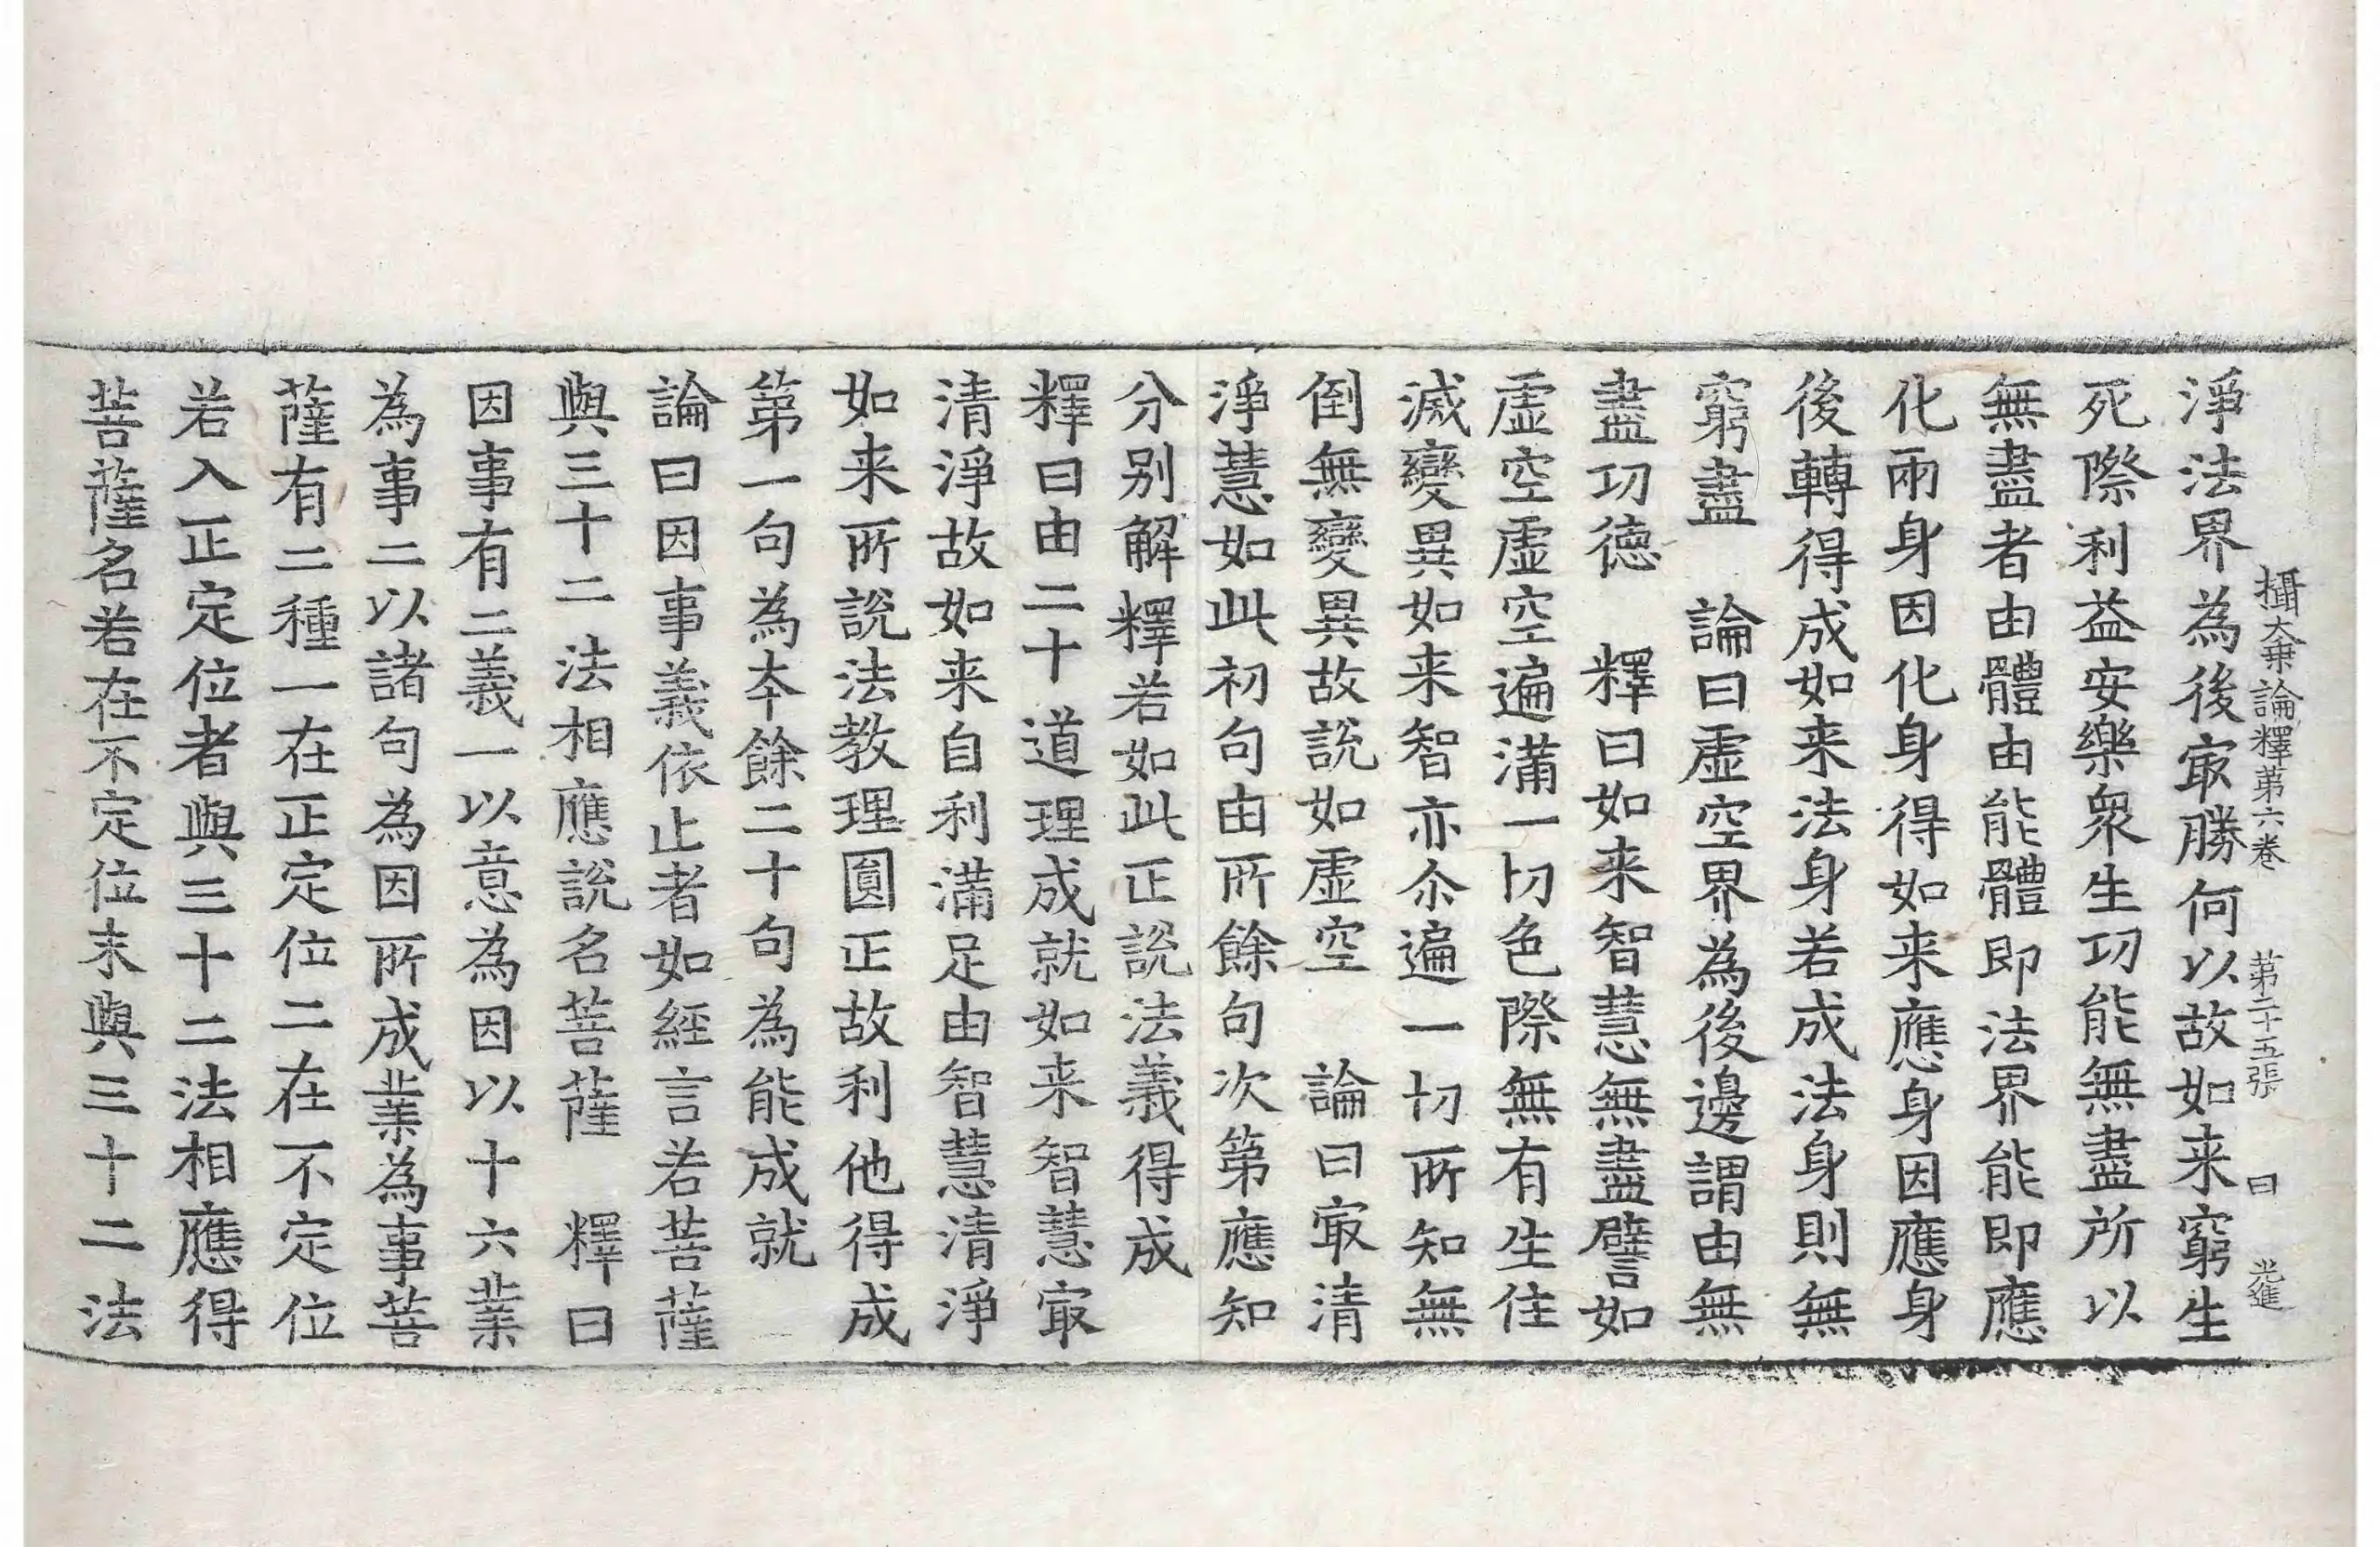 攝大乗論釋第六卷 第二十五張 曰 進
淨法界為後㝡勝何以故如来窮生
死際利益安樂衆生功能無盡所以
無盡者由體由能體即法界能即應
化兩身因化身得如来應身因應身
後轉得成如来法身若成法身則無
窮盡 論曰虛空界為後邊謂由無
盡功德 釋曰如来智慧無盡譬如
虛空虛空遍滿一切色際無有生住
滅變異如来智亦尒遍一切所知無
倒無變異故説如虛空 論曰㝡清
淨慧如此初句由所餘句次第應知
分别解釋若如此正説法義得成
釋曰由二十道理成就如来智慧㝡
清淨故如来自利滿足由智慧清淨
如来所說法教理圓正故利他得成
第一句為夲餘二十句為能成就
論曰因事義依止者如經言若菩薩
與三十二法相應說名菩薩 釋曰
因事有二義一以意為因以十六業
為事二以諸句為因所成業為事菩
薩有二種一在正定位二在不定位
若入正定位者與三十二法相應得
菩薩名若在不定位未與三十二法